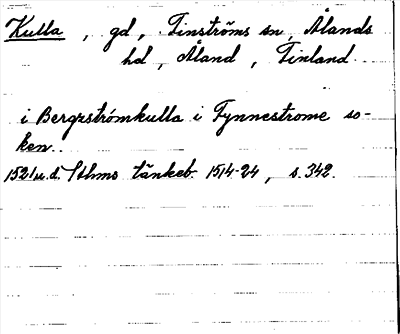 Kulla , gd , Finströms sn, Ålands
hd , Åland , Finland
i Bergzströmkulla i Fynnestrome so-
ken.
1521 u.d. Sthms tänkeb. 1514-24 , s. 342.